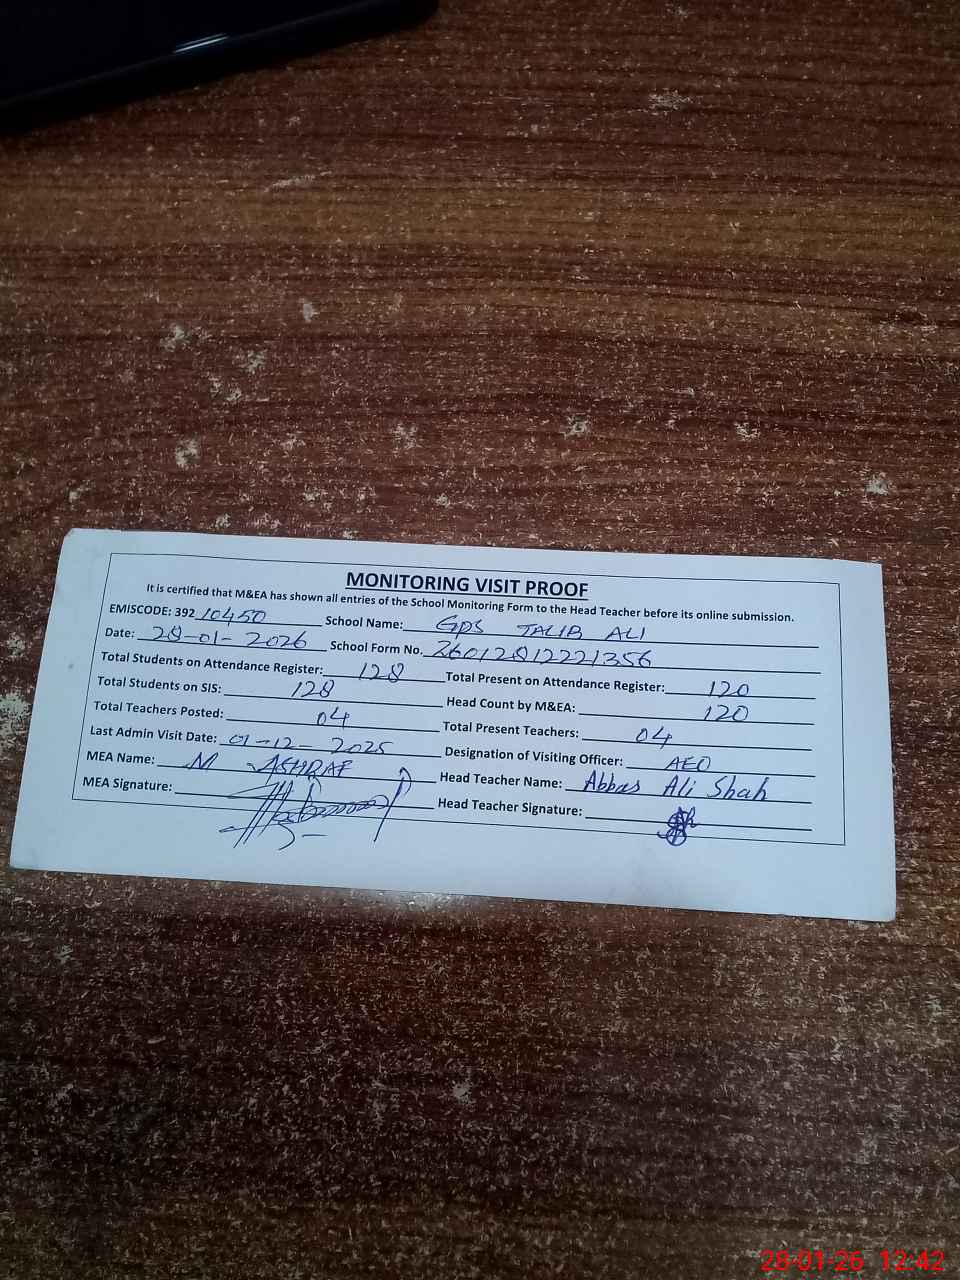 MONITORING VISIT PROOF
It is certified that M&EA has shown all entries of the School Monitoring Form to the Head Teacher before its online submission.
EMISCODE: 392 10450 School Name: GPS TALIB ALI
Date: 28-01-2026 School Form No. 26012812221356
Total Students on Attendance Register: 128 Total Present on Attendance Register: 120
Total Students on SIS: 128 Head Count by M&EA: 120
Total Teachers Posted: 04 Total Present Teachers: 04
Last Admin Visit Date: 01-12-2025 Designation of Visiting Officer: AEO
MEA Name: M ASHRAF Head Teacher Name: Abbas Ali Shah
MEA Signature: Head Teacher Signature:
28-01-26 12:42